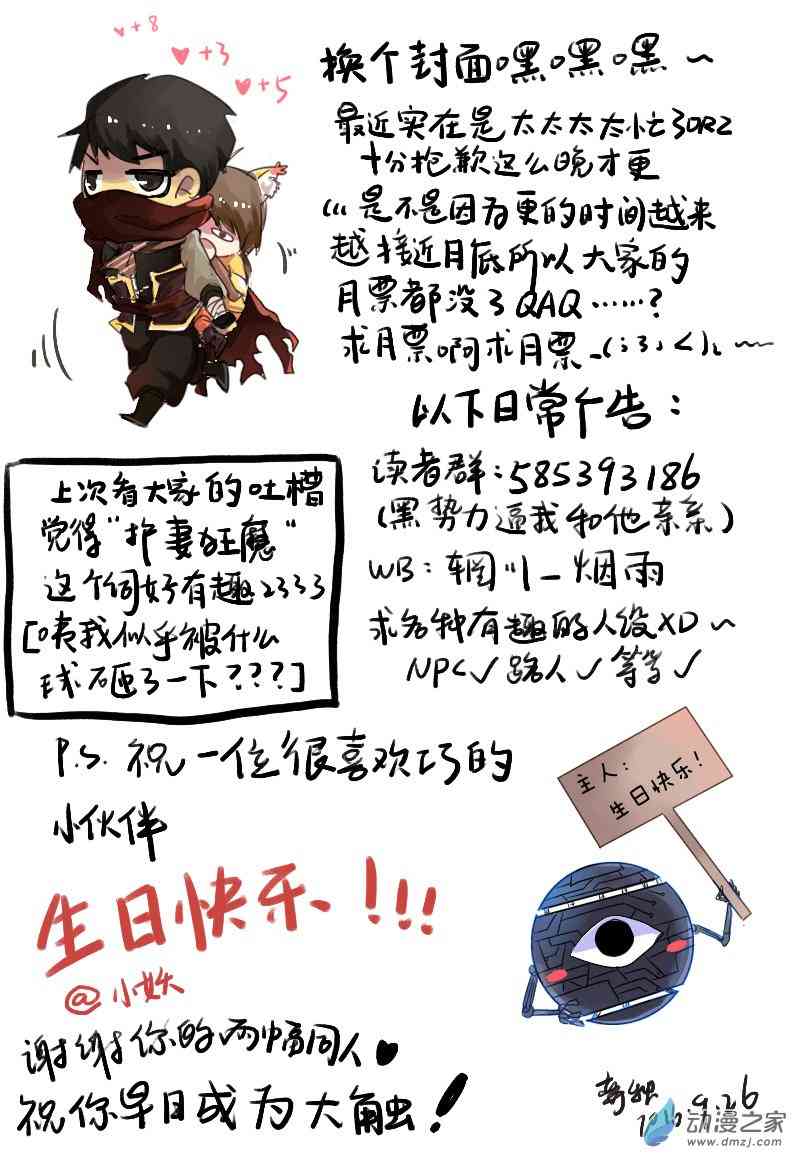 +8
+3
+5
换个封面嘿嘿嘿~
最近实在是太太太太忙了ORZ
十分抱歉这么晚才更
(((是不是因为更的时间越来
越接近月底所以大家的
月票都没了QAQ……?
求月票啊求月票_(:3,<)_~
以下日常广告:
读者群:585393186
(黑势力逼我和他亲亲)
WB:辋川_烟雨
求各种有趣的人设XD~
NPC✓路人✓等等✓
上次看大家的吐槽
觉得“护妻狂魔”
这个词好有趣2333
[咦我似乎被什么
球砸了一下???]
P.S. 祝一位很喜欢巧的
小伙伴
主人:
生日快乐!
生日快乐!!!
@小妖
谢谢你的两幅同人♥
祝你早日成为大触!
9.26
动漫之家
www.dmzj.com